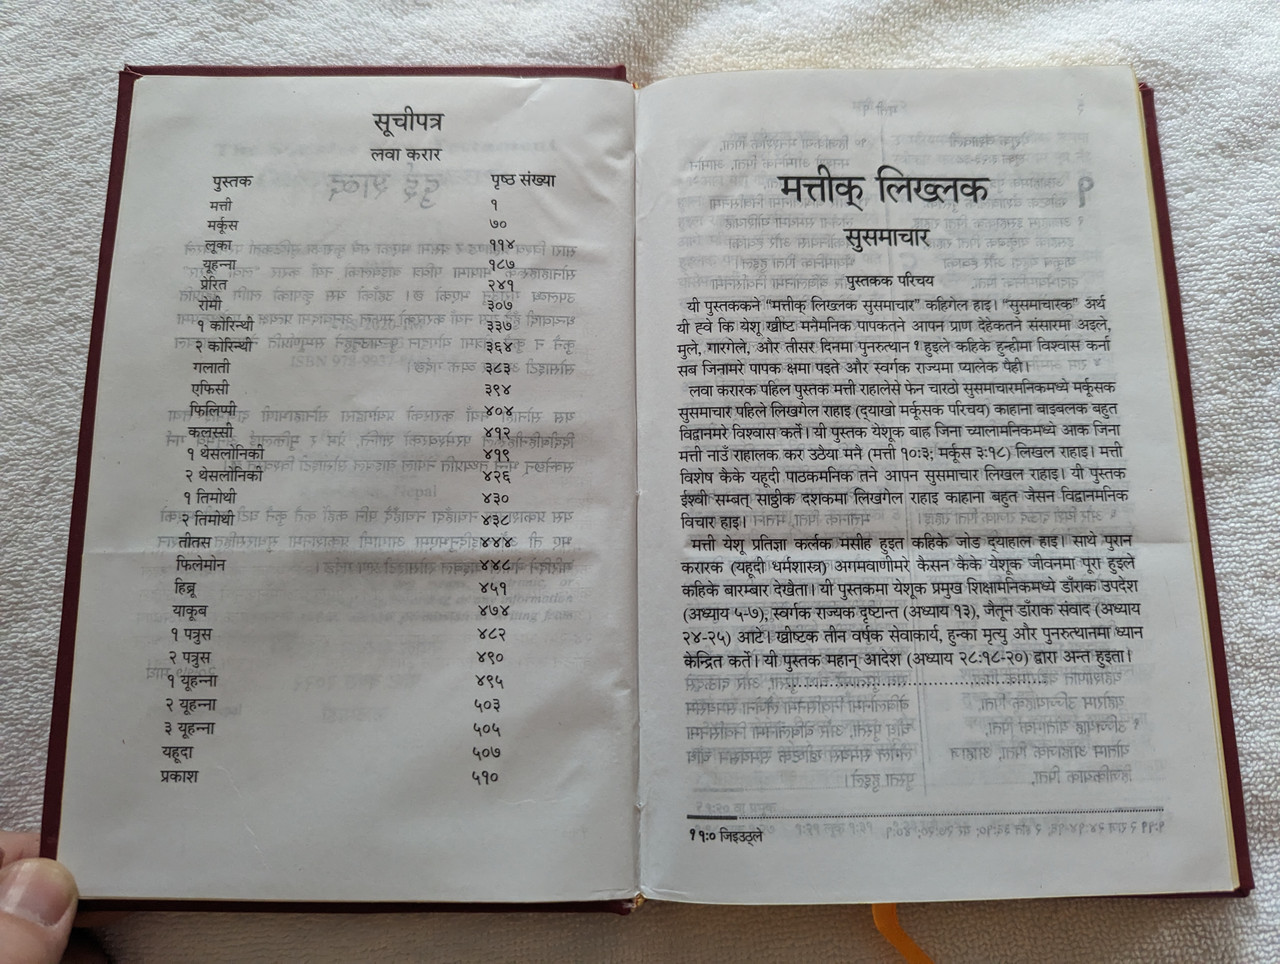 सूचीपत्र
लवा करार
पुस्तक पृष्ठ संख्या
मत्ती १
मर्कूस ७०
लूका ११४
यूहन्ना १८७
प्रेरित २४१
रोमी ३०७
१ कोरिन्थी ३३७
२ कोरिन्थी ३६४
गलाती ३८३
एफिसी ३९४
फिलिप्पी ४०४
कलस्सी ४१२
१ थेसलोनिकी ४१९
२ थेसलोनिकी ४२६
१ तिमोथी ४३०
२ तिमोथी ४३८
तीतस ४४४
फिलेमोन ४४८
हिब्रू ४५१
याकूब ४७४
१ पत्रुस ४८२
२ पत्रुस ४९०
१ यूहन्ना ४९५
२ यूहन्ना ५०३
३ यूहन्ना ५०५
यहूदा ५०७
प्रकाश ५१०
मत्तीक् लिख्लक
सुसमाचार
पुस्तकक परिचय
यी पुस्तककने “मत्तीक् लिखलक सुसमाचार” कहिगेल हाइ। “सुसमाचारक” अर्थ
यी ह्वे कि येशू ख्रीष्ट मनैमनिक पापकतने आपन प्राण देहेकतने संसारमा अइले,
मुले, गारगेले, और तीसर दिनमा पुनरुत्थान १ हुइले कहिके हुन्हीमा विश्वास कर्ना
सब जिनामरे पापक क्षमा पइते और स्वर्गक राज्यमा प्यालेक पैही।
लवा करारक पहिल पुस्तक मत्ती राहालेसे फेन चारठो सुसमाचारमनिकमध्ये मर्कूसक
सुसमाचार पहिले लिखगेल राहाइ (द्‌याखो मर्कूसक परिचय) काहाना बाइबलक बहुत
विद्वानमरे विश्वास कर्ते। यी पुस्तक येशूक बाह्र जिना च्यालामनिकमध्ये आक जिना
मत्ती नाउँ राहालक कर उठैया मनै (मत्ती १०:३; मर्कूस ३:१८) लिखल राहाइ। मत्ती
विशेष कैके यहूदी पाठकमनिक तने आपन सुसमाचार लिखल राहाइ। यी पुस्तक
ईश्वी सम्बत् साठ्ठीक दशकमा लिखगेल राहाइ काहाना बहुत जैसन विद्वानमनिक
विचार हाइ।
मत्ती येशू प्रतिज्ञा कर्लक मसीह हुइत कहिके जोड द्‌याहाल हाइ। साथे पुरान
करारक (यहूदी धर्मशास्त्र) अगमवाणीमरे कैसन कैके येशूक जीवनमा पूरा हुइले
कहिके बारम्बार देखैता। यी पुस्तकमा येशूक प्रमुख शिक्षामनिकमध्ये डाँराक उपदेश
(अध्याय ५-७), स्वर्गक राज्यक दृष्टान्त (अध्याय १३), जैतून डाँराक संवाद (अध्याय
२४-२५) आटे। ख्रीष्टक तीन वर्षक सेवाकार्य, हुन्का मृत्यु और पुनरुत्थानमा ध्यान
केन्द्रित कर्ते। यी पुस्तक महान् आदेश (अध्याय २८:१८-२०) द्वारा अन्त हुइता।
१ १:० जिइउठ्ले